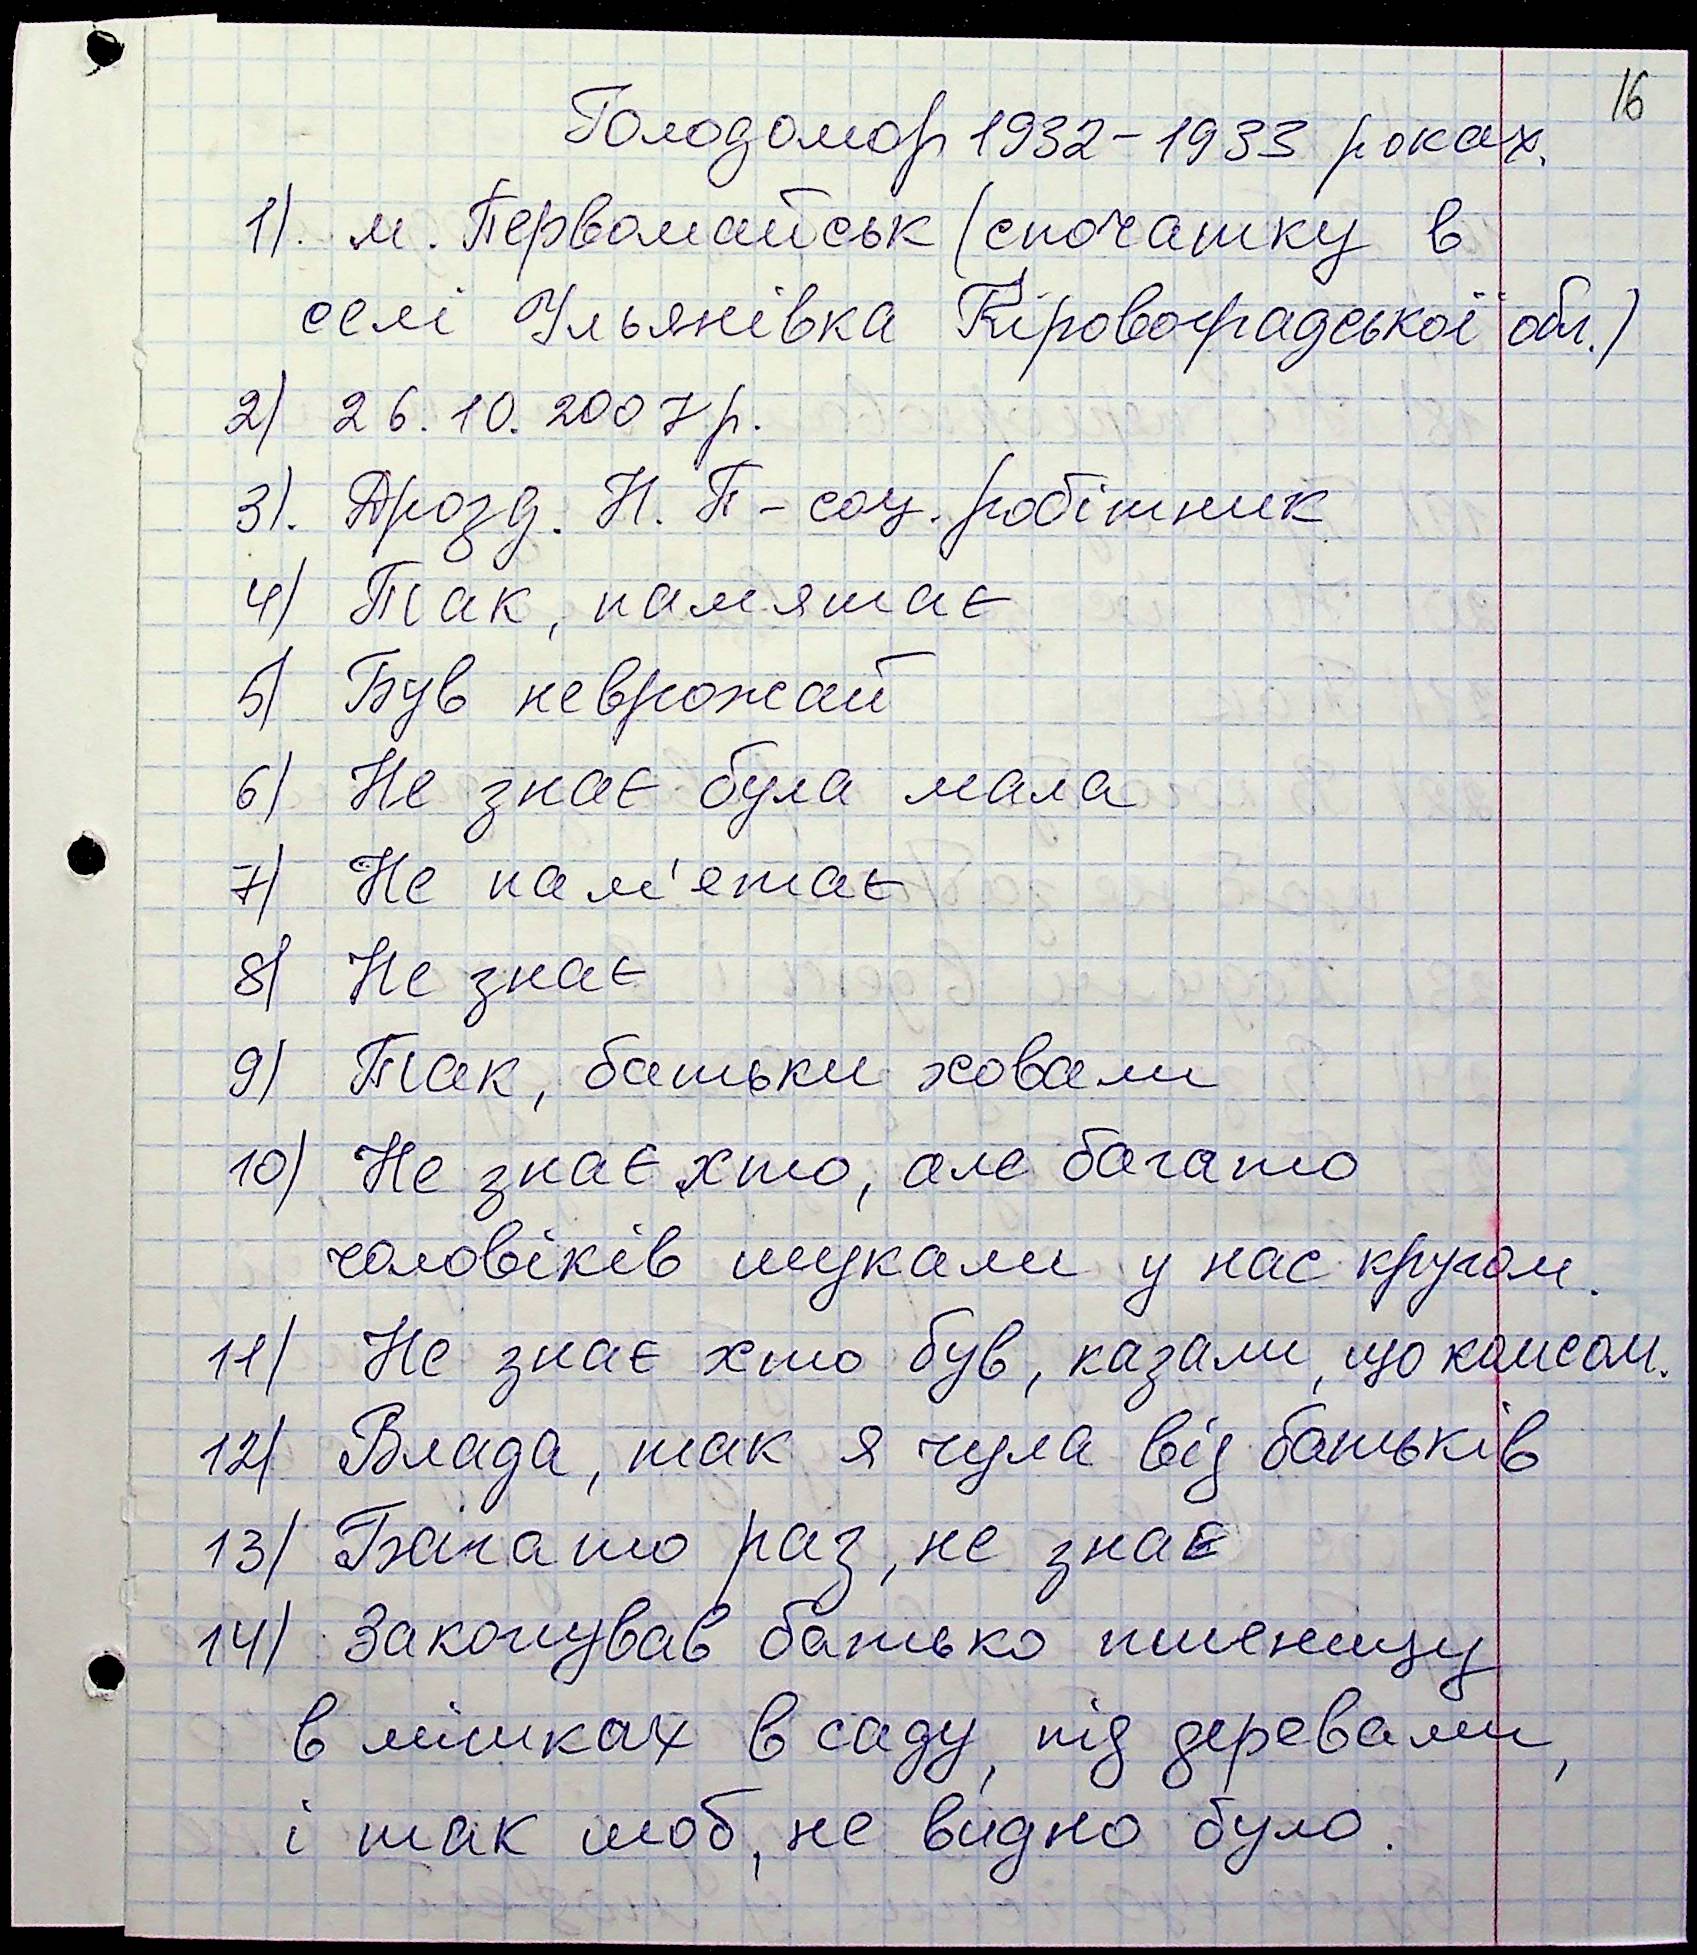 16
Голодомор 1932-1933 роках.
1). м. Первомайськ (спочатку в
селі Ульянівка Кіровоградської обл.)
2) 26.10.2007р.
3). Дрозд. Н. П - соц. робітник
4) Так, памятає
5) Був неврожай
6) Не знає була мала
7) Не пам'ятає
8) Не знає
9) Так, батьки ховали
10) Не знає хто, але багато
чоловіків шукали у нас кругом.
11) Не знає хто був, казали, що комсом.
12) Влада, так я чула від батьків
13) Багато раз, не знає
14) Закопував батько пшеницу
в мішках в саду, під деревами,
і так шоб, не видно було.